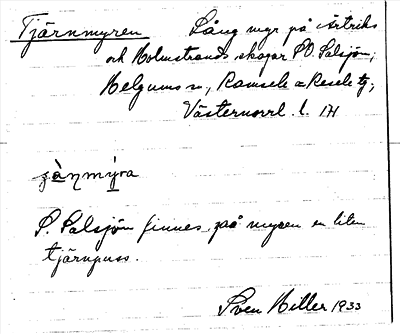 Tjärnmyren Lång myr på Artriks
och Holmstrands skogar SO. Salsjön,
Helgums sn, Ramsele o Resele tg,
Västernorrl. l. 1H
Salsjön finnes på myren en liten
tjärnpuss.
Sven Hiller 1933